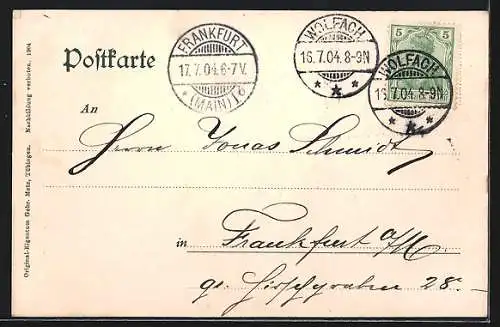 Postkarte
FRANKFURT
17.7.04.6-7V.
* (MAIN) 1 b
WOLFACH
16.7.04.8-9N
* * *
5 5
WOLFACH
16.7.04.8-9N
* * *
An
Herrn Jonas Schmidt
in Frankfurt a/M.
gr. Hirschgraben 28.
Original-Eigentum Gebr. Metz, Tübingen. Nachbildung verboten. 1904